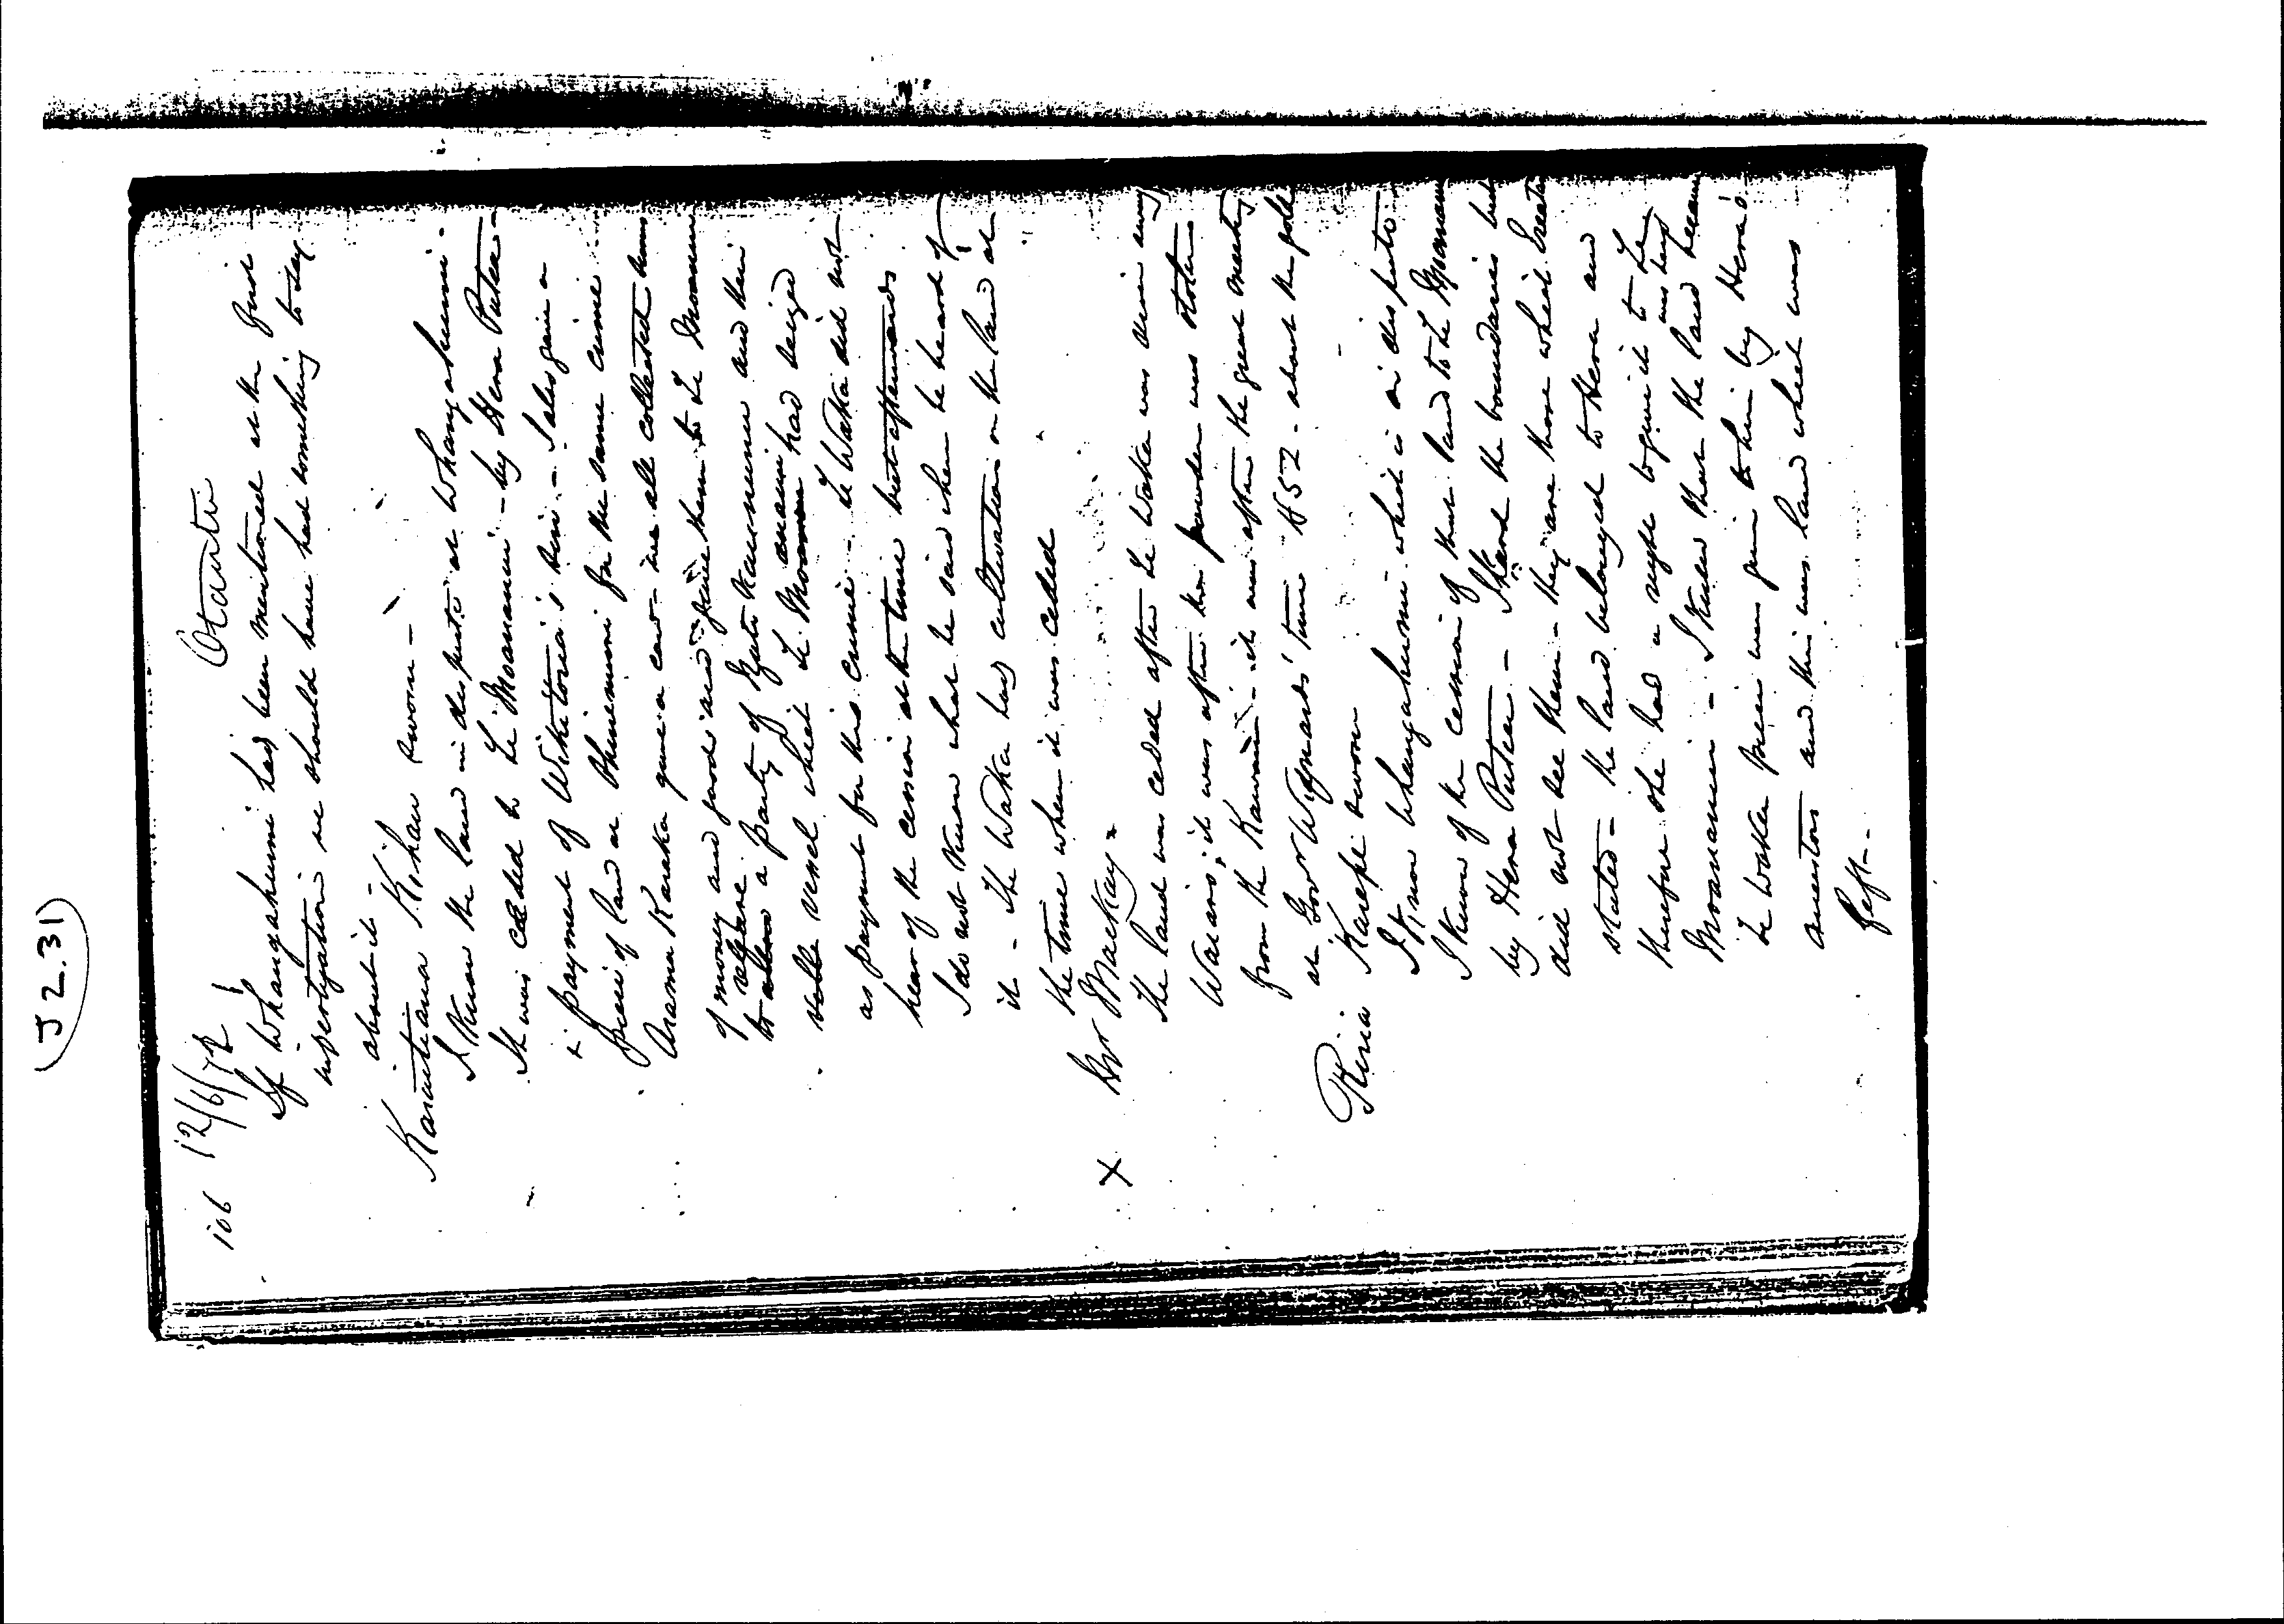 (J 2.31)
106 12/6/72 Otautu
If Whangahumi had been mentioned at the first
investigation we should have had something to say
about it -
Karaitiana Kihau sworn -
I know the land in dispute at Whangahumi -
It was ceded to Te Moananui - by Hera Putea -
in payment of Wikitoria's sin - I also gave a
piece of land at Ohinemuri for the same crime -
Arama Karaka gave a cow - we all collected sums
of money and goods and gave them to Te Moananui
to a party of and their
vessel which Te Moananui had seized
as payment for this crime - Te Waka did not
hear of the cession at the time but afterwards
I do not know what he said when he heard of
it - Te Waka had cultivation on the land at
the time when it was ceded
X Mr Mackay =
The land was ceded after Te Waka was driven away
Waiau; it was after the powder was stolen
from the Kawau - it was after the great meeting
at Govr Wynyards' time 1852 - about the gold
Riria Karepe sworn
I know Whangahumi which is in dispute -
I know of the cession of that land to Te Moananui
by Hera Putea - I heard the boundaries but
did not see them - they are those which
stated - the land belonged to Hera and
therefore she had a right to give it to Te
Moananui - I know that the land became
Te Waka piece was given to him by Hera's
ancestors and this was land which was
left -